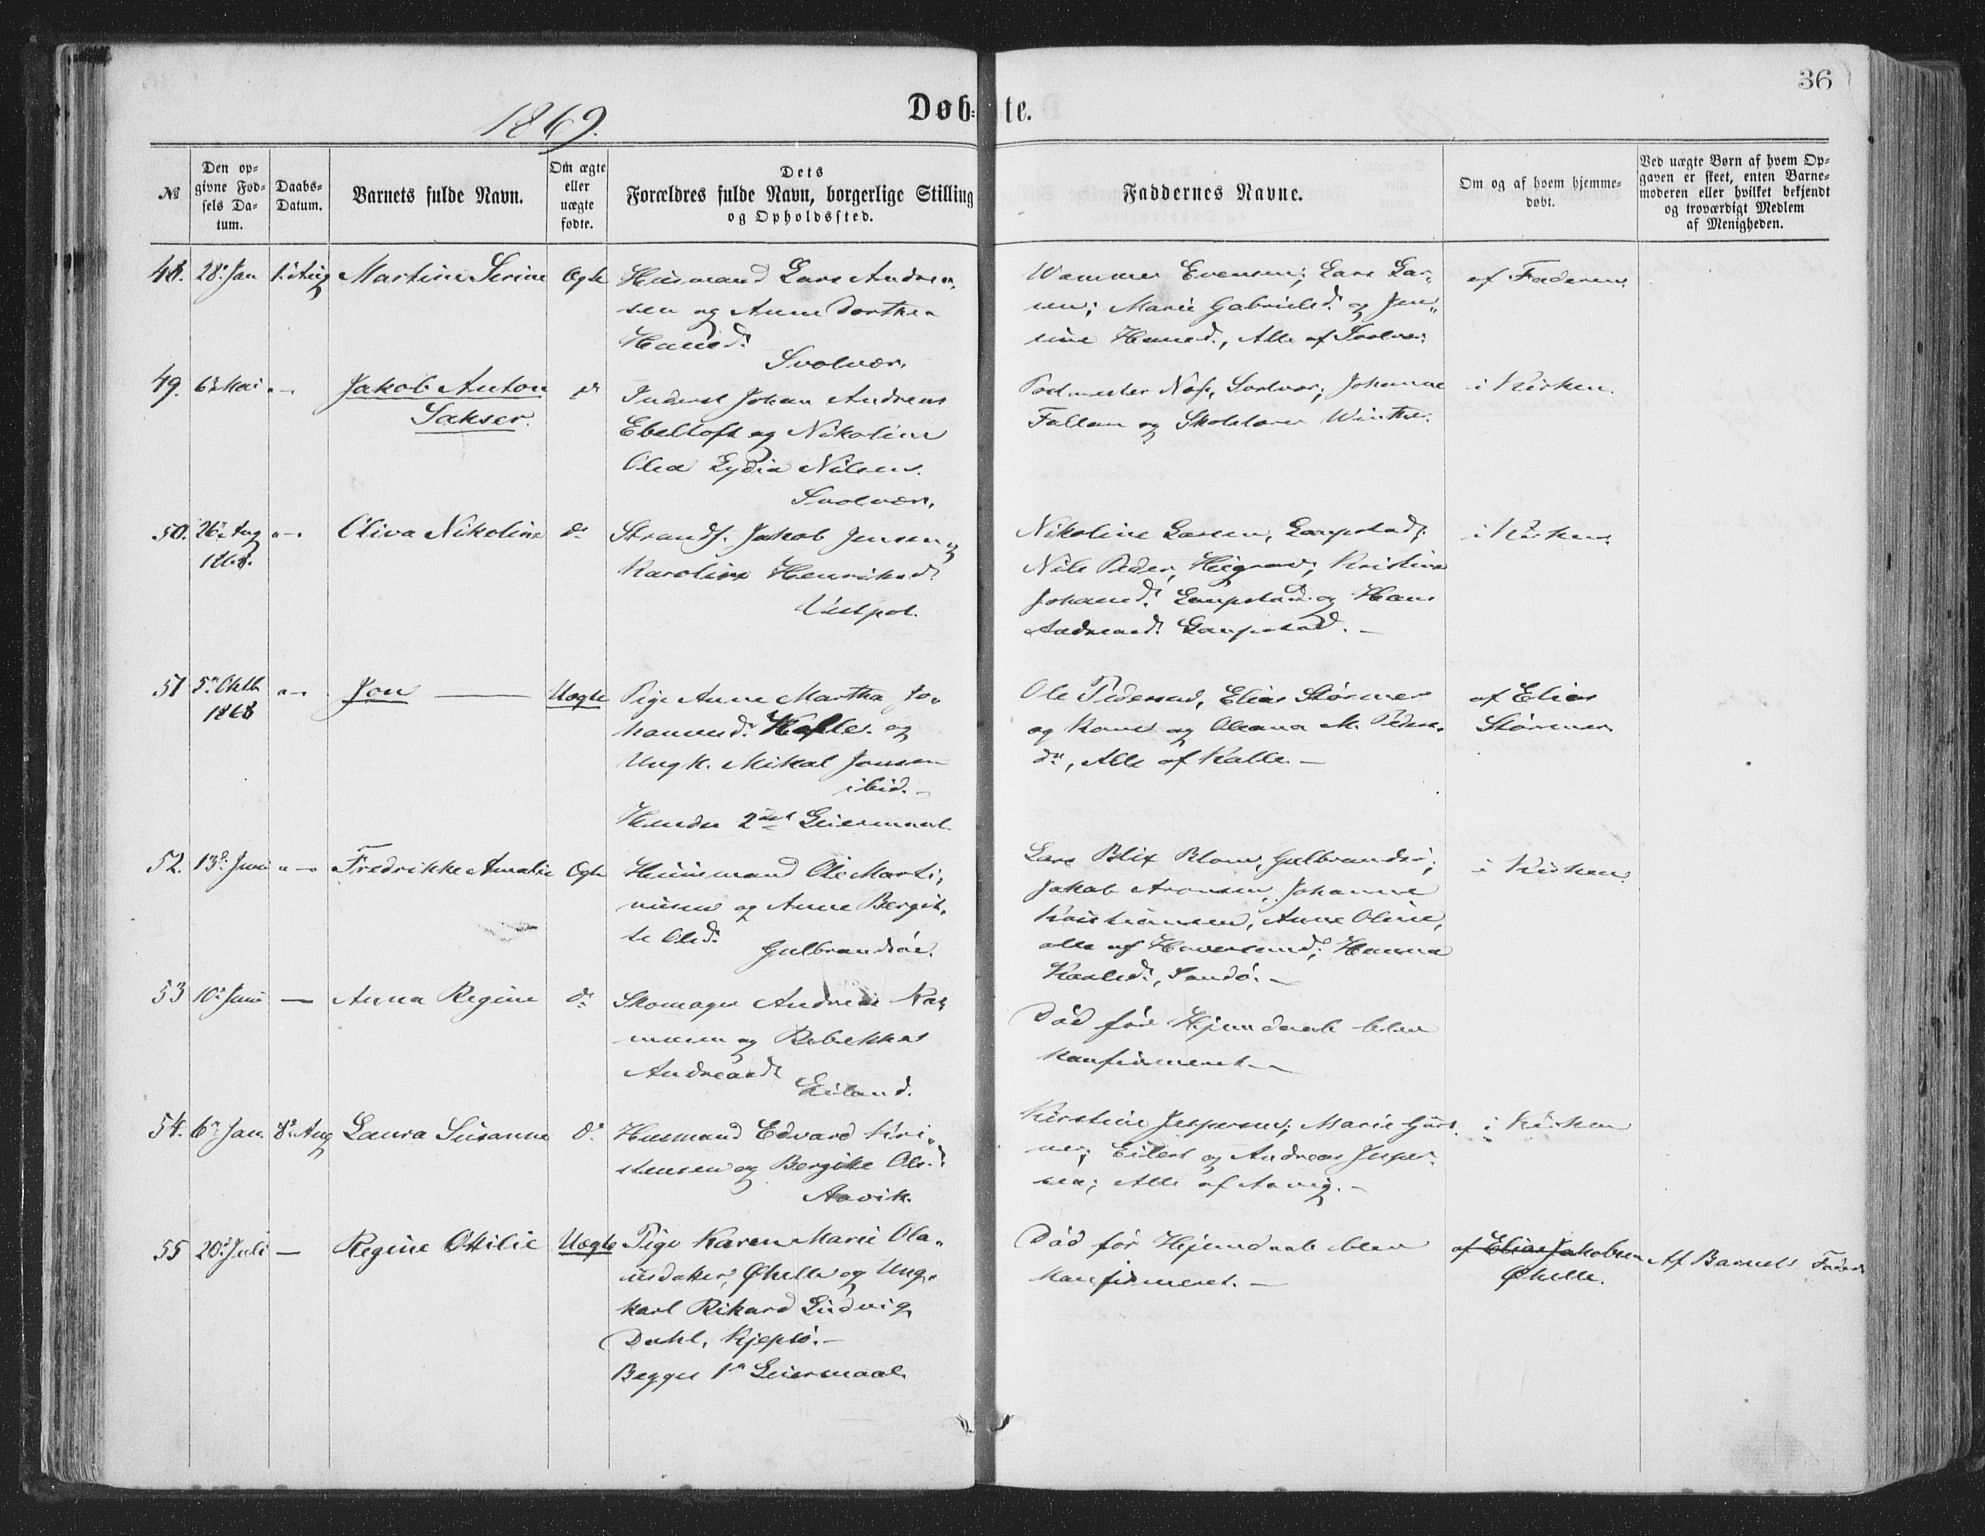 36
1869.
Døb-te.
№
Den op-
givne Fød-
sels Da-
tum.
Daabs-
Datum.
Barnets fulde Navn.
Om ægte
eller
uægte
fødte.
Dets
Forældres fulde Navn, borgerlige Stilling
og Opholdssted.
Faddernes Navne.
Om og af hvem hjemme-
døbt.
Ved uægte Børn af hvem Op-
gaven er skeet, enten Barne-
moderen eller hvilket bekjendt
og troværdigt Medlem
af Menigheden.
48. 28. Jan 1. Aug Martine Serine Ægte
Huusmand Lars Andrea-
sen og Anne Dorthea
Hansd.
Svolvær.
Evensen; Lars Lar-
sen; Marie Gabrielsd. og Jen-
sine Hansd., Alle af Svolvær.
af Faderen.
49. 6. Mai Jakob Anton
Sakser.
Inderst Johan Andreas
Ebeltoft og Nikoline
Olea Lydia Nilsen.
Svolvær.
Postmester Svolvær; Johanna
Fallan og Skolelærer Winther.
i Kirken.
50. 26. Aug
1868.
Oliva Nikoline do
Strands. Jakob Jensen og
Karoline Henriksd.
Vestpol.
Nikoline Larsen, Laupstad;
Nils Peder, Kristine
Johansd. Laupstad og Hans
Andreasd. Laupstad. —
i Kirken.
51 5. Oktb
1868
Jon —
Uægte
Pige Anne Martha Jo-
hannesd. Kalle og
Ungk. Mikal Jonsen
ibid. —
Hendes 2det Leiermaal.
Ole Pedersen, Elias Størmer
og Kone og Oleana M. Peders-
dr, Alle af Kalle. —
af Elias
Størmer
52. 13. Juni Fredrikke Amalie Ægte
Huusmand Ole Marti-
nusen og Anne Bergit-
te Olsd.
Gulbrandsøe.
Lars Blix Blom, Gulbrandsø;
Jakob Aronsen, Johanne
Kristiansen, Anne Oline,
alle af Haversund; Hanna
Karlsd., Sandø. —
i Kirken.
53 10. Juni — Anna Regine do
Skomager Andreas Ras-
musen og Rebekka
Andreasd.
Eiland.
Død før Hjemdaab blev
konfirmeret. —
54. 6. Jan. 8. Aug Laura Susanne do
Husmand Edvard Kri-
stensen og Bergitte Ols.d.
Aavik.
Kirstine Jespersen; Marie
Eilert og Andreas Jesper-
sen; Alle af Aavig. —
i Kirken
55 20. Juli — Regine Ottilie Uægte
Pige Karen Marie Ola-
usdatter, Øhelle og Ung-
karl Rikard Ludvig
Dahl, Kjeøsø. —
Begges 1ste Leiermaal
Død før Hjemdaab blev
konfirmeret. —
af Elias Jakobsen
Øhelle.
Af Barnets Fader